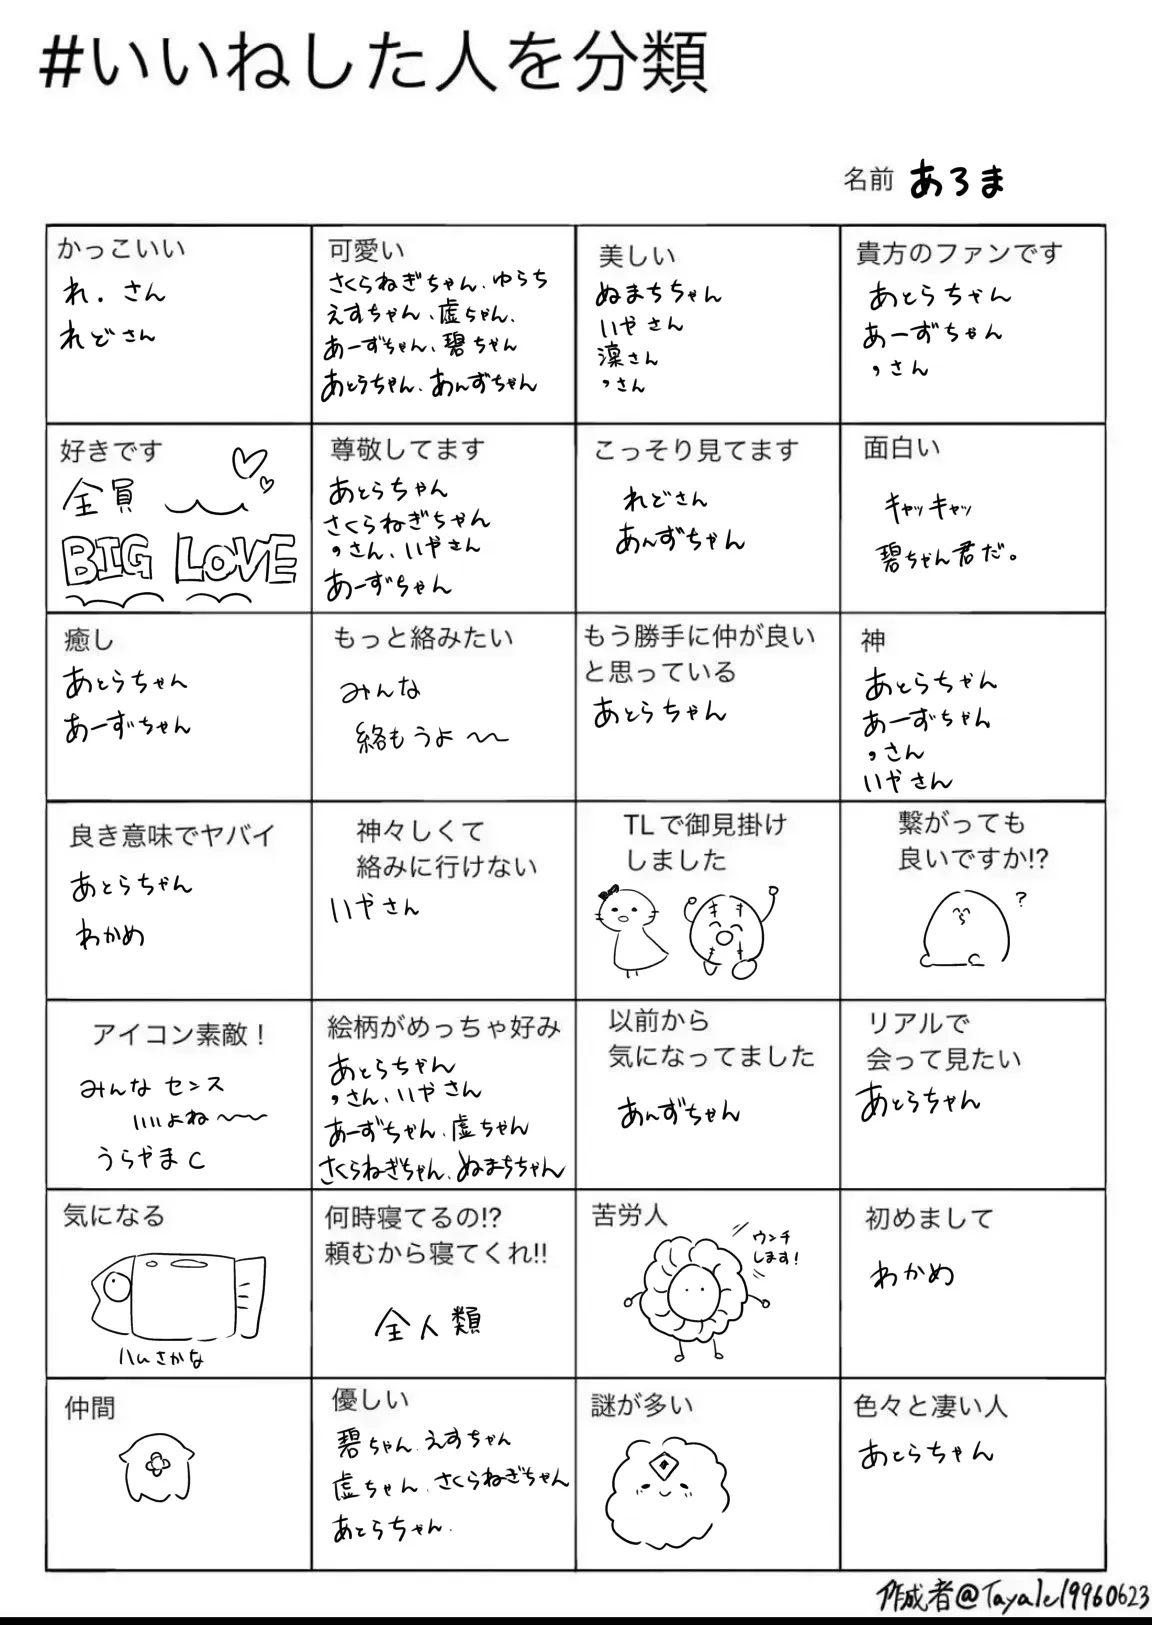 #いいねした人を分類
名前 あろま
かっこいい
れ。さん
れどさん
可愛い
さくらねぎちゃん、ゆうち
えすちゃん、虚ちゃん、
あーずちゃん、碧ちゃん
あとらちゃん、あんずちゃん
美しい
ぬまちちゃん
いやさん
凜さん
,さん
貴方のファンです
あとらちゃん
あーずちゃん
,さん
好きです
全員
BIG LOVE
尊敬してます
あとらちゃん
さくらねぎちゃん
,さん、いやさん
あーずちゃん
こっそり見てます
れどさん
あんずちゃん
面白い
キャッキャッ
碧ちゃん君だ。
癒し
あとらちゃん
あーずちゃん
もっと絡みたい
みんな
絡もうよ〜〜
もう勝手に仲が良い
と思っている
あとらちゃん
神
あとらちゃん
あーずちゃん
,さん
いやさん
良き意味でヤバイ
あとらちゃん
わかめ
神々しくて
絡みに行けない
いやさん
TLで御見掛け
しました
繋がっても
良いですか!?
?
アイコン素敵!
みんなセンス
いいよね〜〜
うらやまC
絵柄がめっちゃ好み
あとらちゃん
,さん、いやさん
あーずちゃん、虚ちゃん
さくらねぎちゃん、ぬまちちゃん
以前から
気になってました
あんずちゃん
リアルで
会って見たい
あとらちゃん
気になる
ハムさかな
何時寝てるの!?
頼むから寝てくれ!!
全人類
苦労人
ウンチ
します!
初めまして
わかめ
仲間
優しい
碧ちゃん、えすちゃん
虚ちゃん、さくらねぎちゃん
あとらちゃん、
謎が多い
色々と凄い人
あとらちゃん
作成者@Tayale19960623